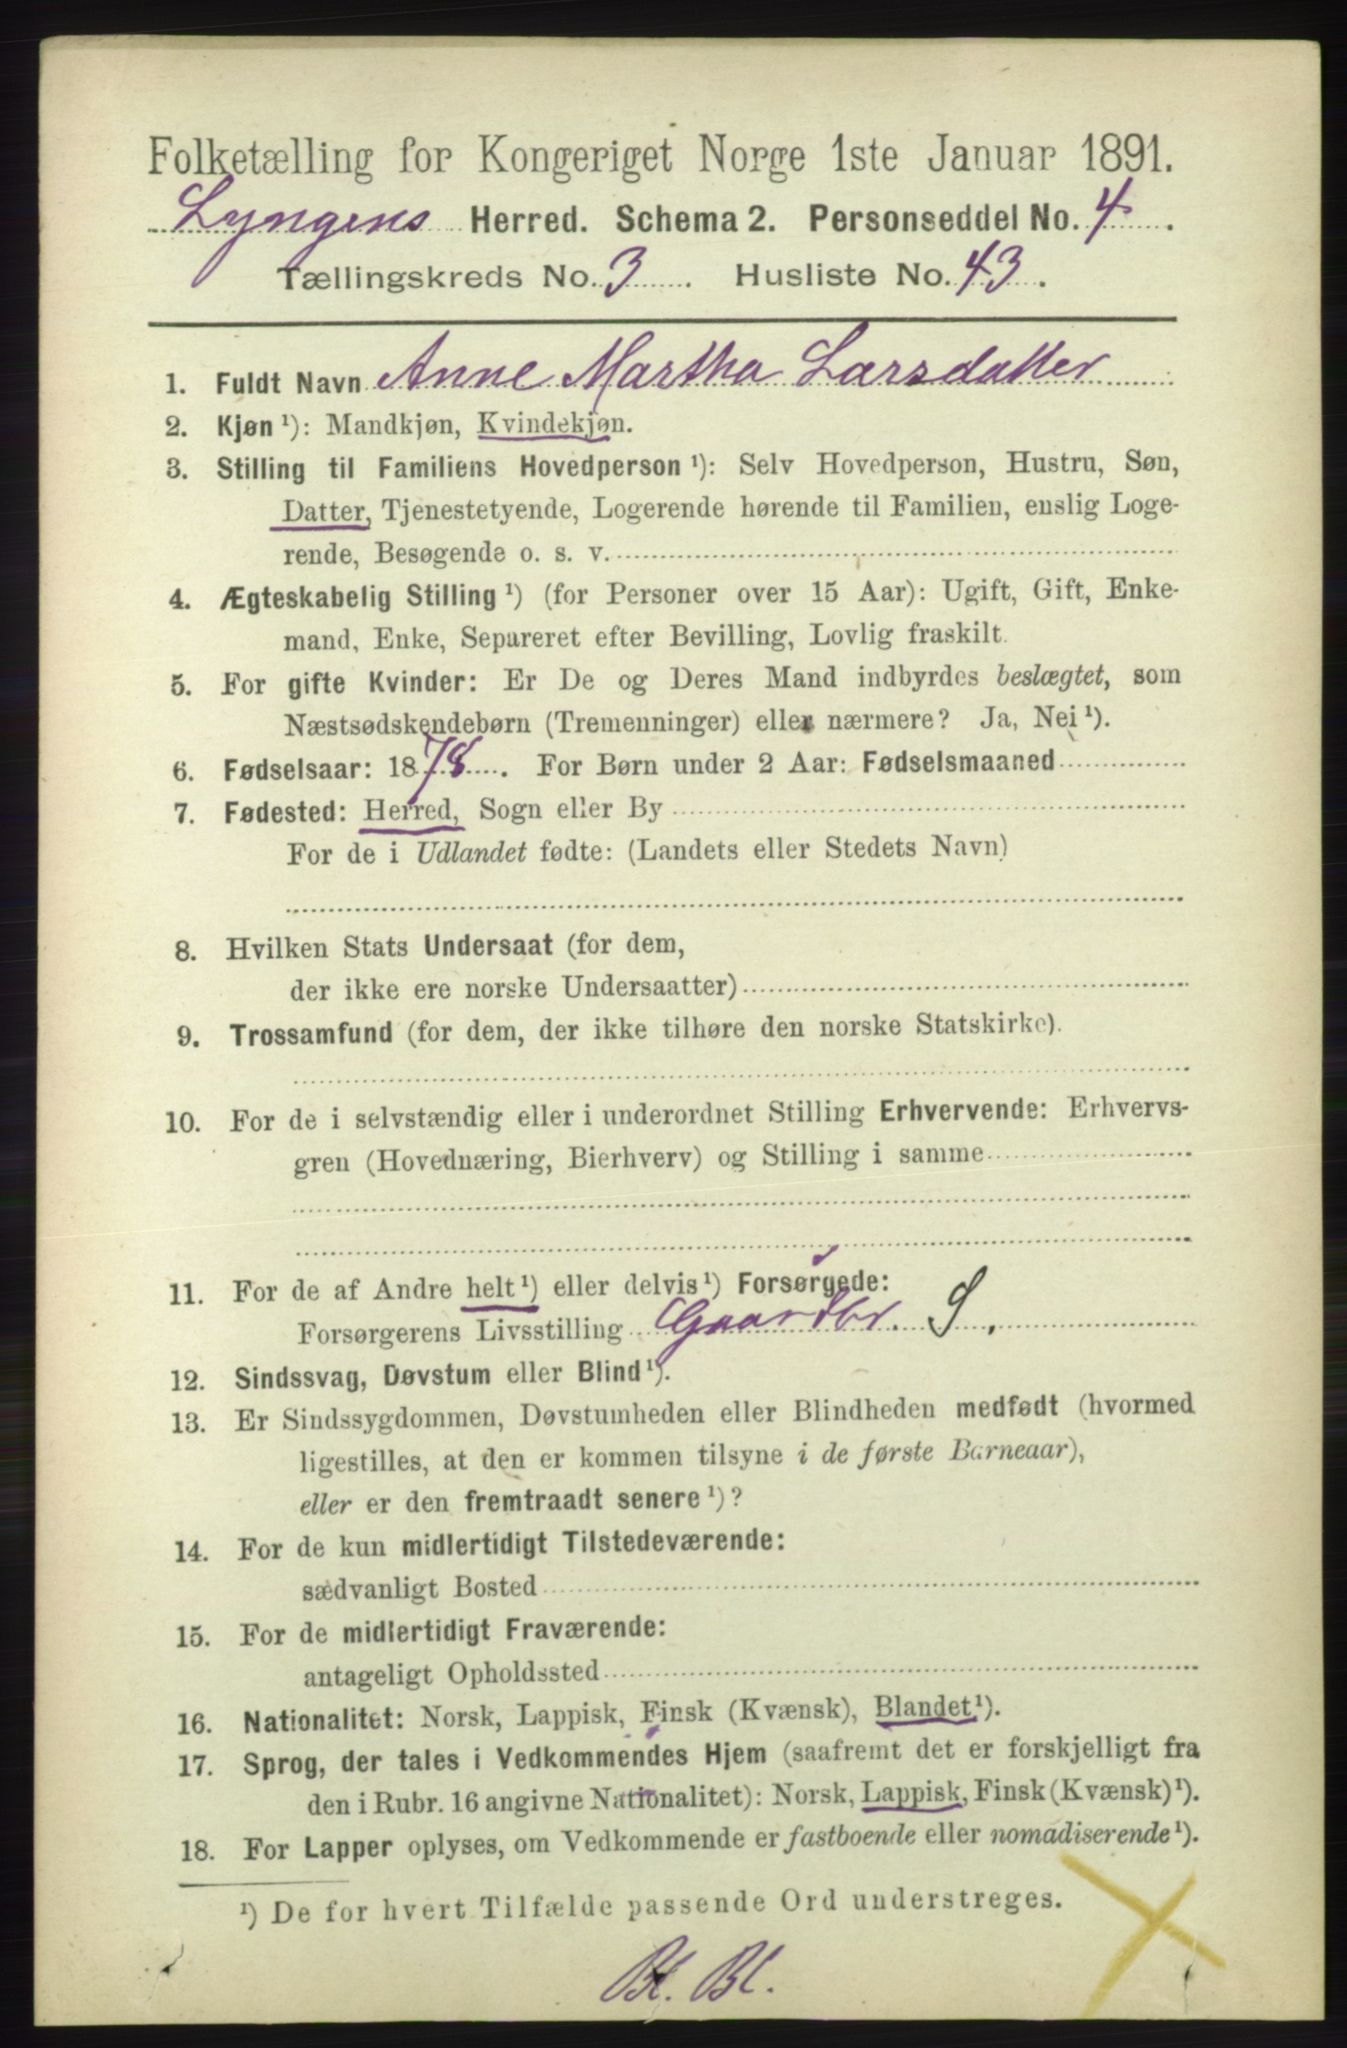 Folketælling for Kongeriget Norge 1ste Januar 1891.
Lyngens Herred. Schema 2. Personseddel No. 4.
Tællingskreds No. 3. Husliste No. 43.
1. Fuldt Navn Anne Martha Larsdatter
2. Kjøn ¹): Mandkjøn, Kvindekjøn.
3. Stilling til Familiens Hovedperson ¹): Selv Hovedperson, Hustru, Søn,
Datter, Tjenestetyende, Logerende hørende til Familien, enslig Loge-
rende, Besøgende o. s. v.
4. Ægteskabelig Stilling ¹) (for Personer over 15 Aar): Ugift, Gift, Enke-
mand, Enke, Separeret efter Bevilling, Lovlig fraskilt.
5. For gifte Kvinder: Er De og Deres Mand indbyrdes beslægtet, som
Næstsødskendebørn (Tremenninger) eller nærmere? Ja, Nei ¹).
6. Fødselsaar: 1878. For Børn under 2 Aar: Fødselsmaaned
7. Fødested: Herred, Sogn eller By
For de i Udlandet fødte: (Landets eller Stedets Navn)
8. Hvilken Stats Undersaat (for dem,
der ikke ere norske Undersaatter)
9. Trossamfund (for dem, der ikke tilhøre den norske Statskirke).
10. For de i selvstændig eller i underordnet Stilling Erhvervende: Erhvervs-
gren (Hovednæring, Bierhverv) og Stilling i samme
11. For de af Andre helt ¹) eller delvis ¹) Forsørgede:
Forsørgerens Livsstilling Gaardbr. S.
12. Sindssvag, Døvstum eller Blind ¹).
13. Er Sindssygdommen, Døvstumheden eller Blindheden medfødt (hvormed
ligestilles, at den er kommen tilsyne i de første Barneaar),
eller er den fremtraadt senere ¹)?
14. For de kun midlertidigt Tilstedeværende:
sædvanligt Bosted
15. For de midlertidigt Fraværende:
antageligt Opholdssted
16. Nationalitet: Norsk, Lappisk, Finsk (Kvænsk), Blandet ¹).
17. Sprog, der tales i Vedkommendes Hjem (saafremt det er forskjelligt fra
den i Rubr. 16 angivne Nationalitet): Norsk, Lappisk, Finsk (Kvænsk) ¹).
18. For Lapper oplyses, om Vedkommende er fastboende eller nomadiserende ¹).
¹) De for hvert Tilfælde passende Ord understreges.
Bl. Bl.